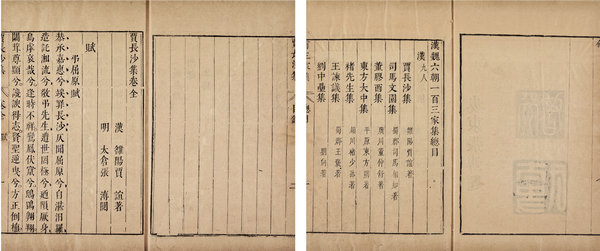 漢魏六朝一百三家集總目
漢 九人
賈長沙集 雒陽賈誼著
司馬文園集 蜀郡司馬相如著
董膠西集 廣川董仲舒著
東方大中集 平原東方朔著
褚先生集 潁川褚少孫著
王諫議集 蜀郡王褒著
劉中壘集 劉向著
賈長沙集卷全
漢 雒陽賈誼著
明 太倉張溥閱
賦
弔屈原賦
恭承嘉惠兮竢罪長沙仄聞屈原兮自湛汨羅
造託湘流兮敬弔先生遭世罔極兮迺隕厥身
烏虖哀哉兮逢時不祥鸞鳳伏竄兮鴟鴞翱翔
闒茸尊顯兮讒諛得志賢聖逆曳兮方正倒植
賈長沙集 卷全 賦